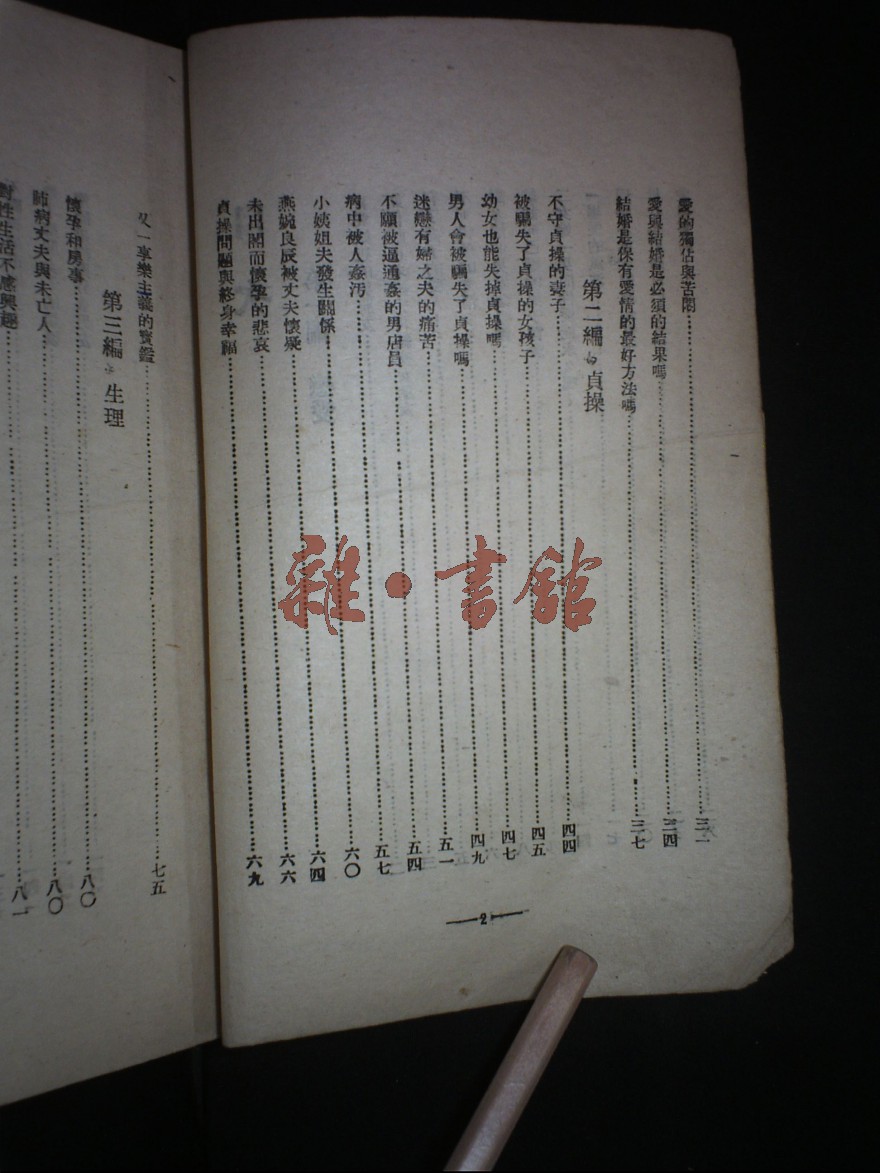 愛的獨佔與苦悶 三一
愛與結婚是必須的結果嗎 三四
結婚是保有愛情的最好方法嗎 三七
第二編 貞操
不守貞操的妻子 四四
被騙失了貞操的女孩子 四五
幼女也能失掉貞操嗎 四七
男人會被騙失了貞操嗎 四九
迷戀有婦之夫的痛苦 五一
不願被逼通姦的男店員 五四
病中被人姦汚 五七
小姨姐夫發生關係 六〇
燕婉良辰被丈夫懷疑 六四
未出閣而懷孕的悲哀 六六
貞操問題與終身幸福 六九
2
又一享樂主義的寶鑑 七五
第三編 生理
懷孕和房事 八〇
肺病丈夫與未亡人 八〇
對性生活不感興趣 八一
雜·書館